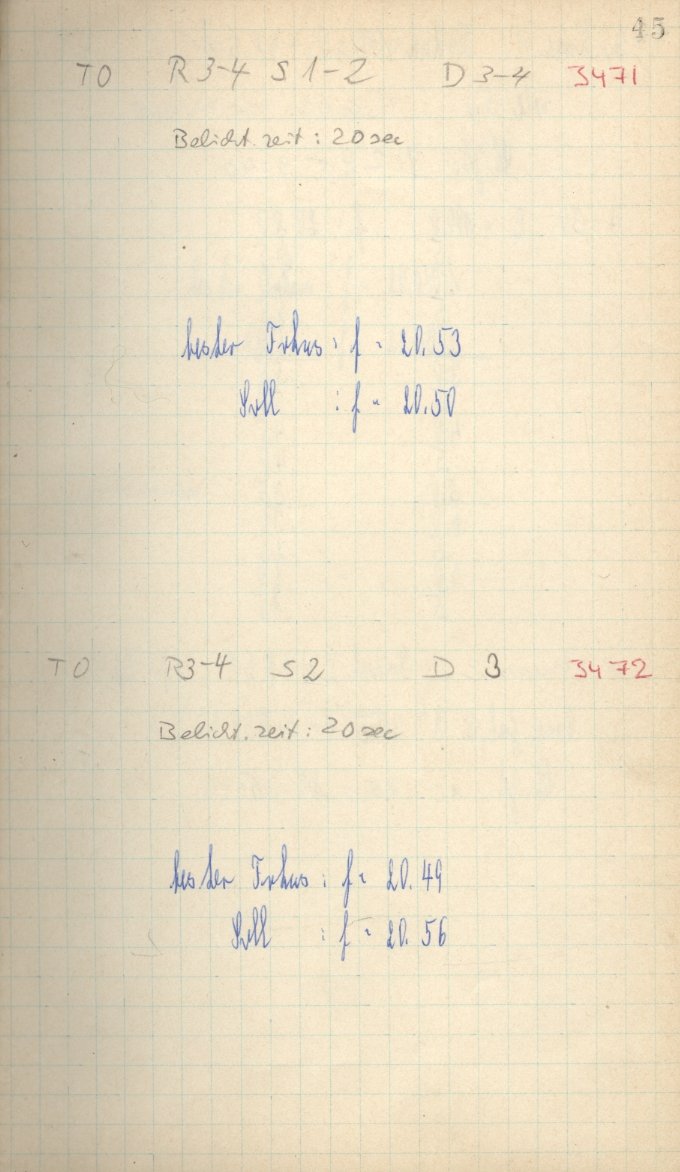 45
TO R3-4 S1-2 D3-4 3471
Belicht.zeit: 20sec
bester Fokus: f = 20.53
Soll : f = 20.50
TO R3-4 S2 D 3 3472
Belicht.zeit: 20sec
bester Fokus: f = 20.49
Soll : f = 20.56